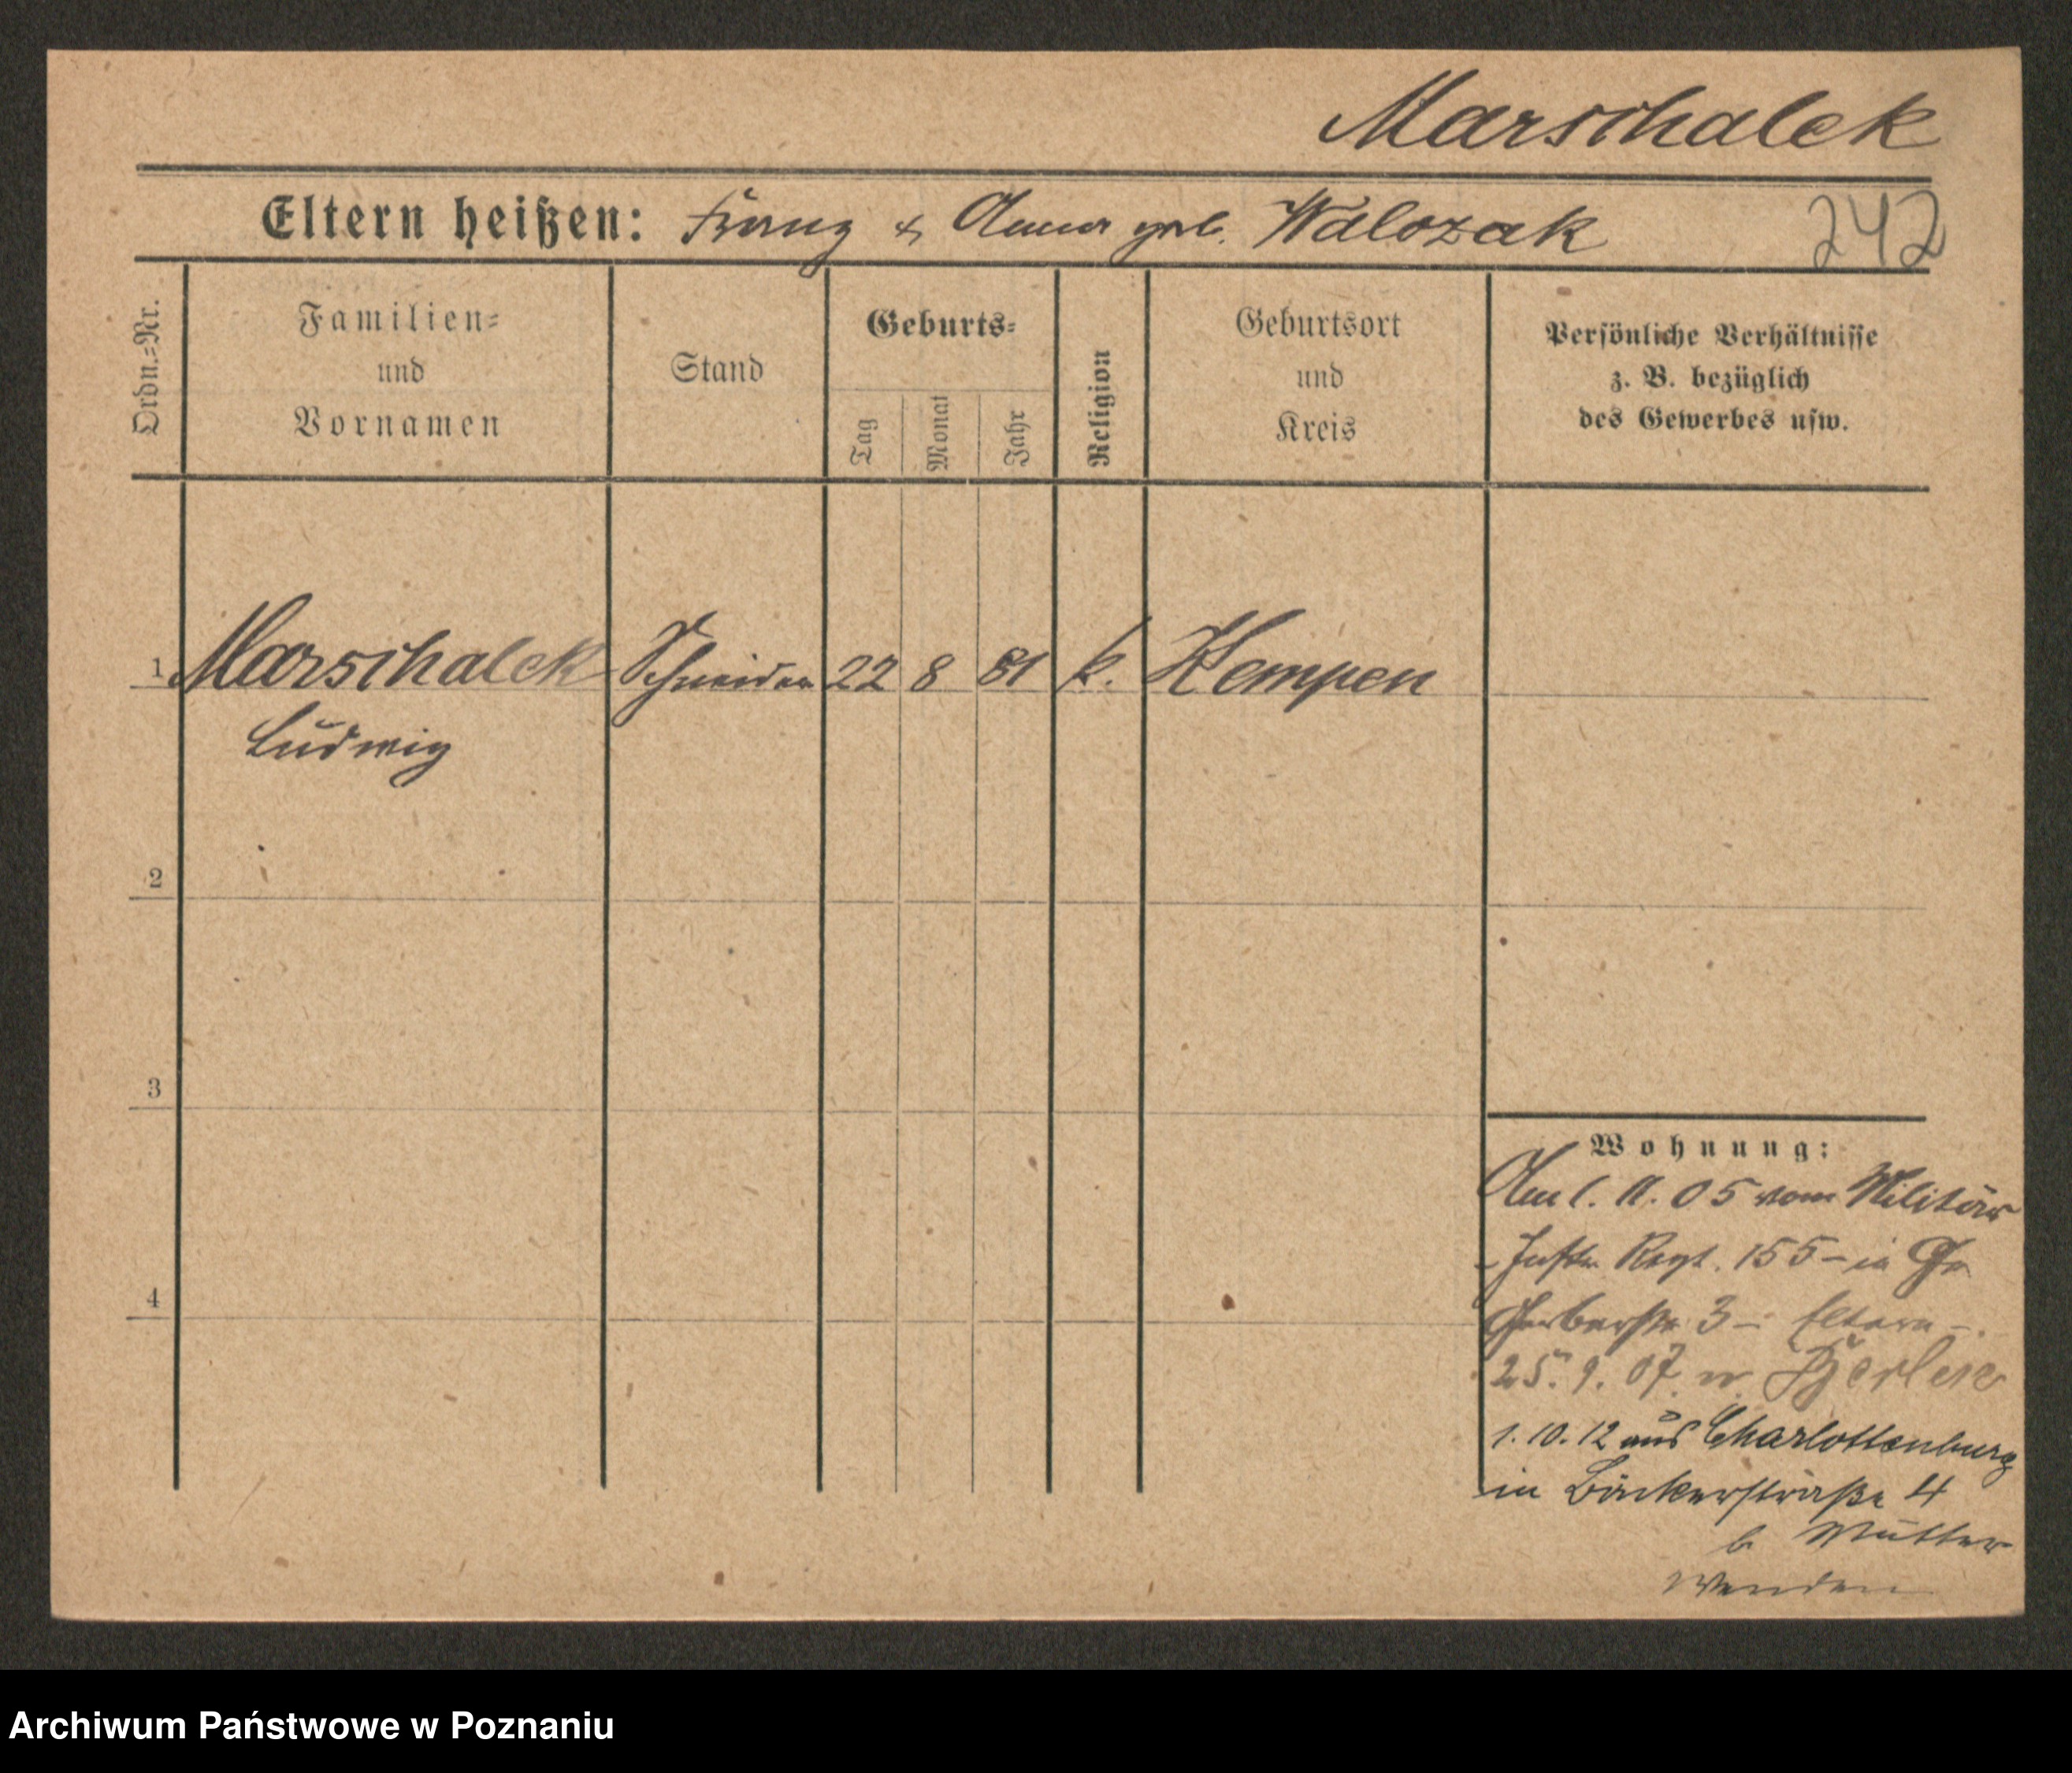 Marschalek
Eltern heißen: Franz & Anna geb. Walczak 242
Ordn.=Nr.
Familien=
und
Vornamen
Stand
Geburts=
Tag
Monat
Jahr
Religion
Geburtsort
und
Kreis
Persönliche Verhältnisse
z. B. bezüglich
des Gewerbes usw.
1 Marschalek Schneider 22 8 81 k. Kempen
Ludwig
2
3
4
Wohnung:
Am 1. 11. 05 vom Militär
- Inftr. Regt. 155 - in
Gerberstr 3 - Eltern -.
25. 9. 07. n. Berlin
1. 10. 12 aus Charlottenburg
in Bäckerstraße 4
b Mutter
Wenden
Archiwum Państwowe w Poznaniu